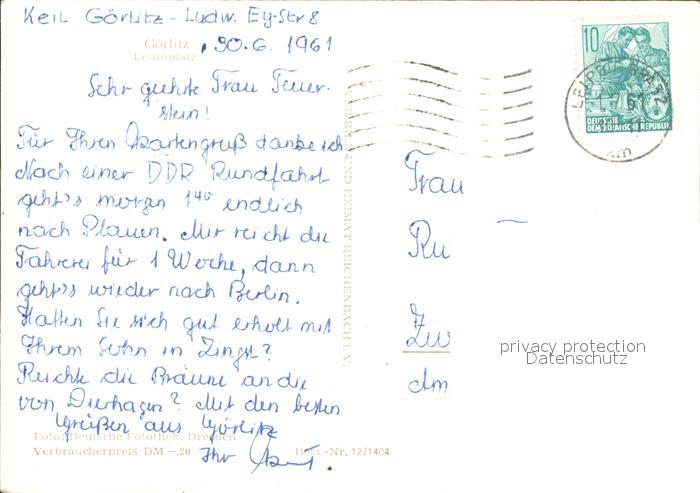 Keil Görlitz - Ludw. Ey-Str 8
Görlitz, 30.6. 1961
Leninplatz
Sehr geehrte Frau Feuer-
stein!
Für Ihren Kartengruß danke ich
Nach einer DDR Rundfahrt
geht's morgen 140 endlich
nach Plauen. Mir reicht die
Fahrerei für 1 Woche, dann
geht's wieder nach Berlin.
Hatten Sie sich gut erholt mit
Ihrem Sohn in Zingst?
Reichte die Bräune an die
von Dierhagen? Mit den besten
Grüßen aus Görlitz
Ihr
Foto: Deutsche Fotothek, Dresden
Verbraucherpreis DM -,20 Best.-Nr. 12/1404
UND HEIMAT REICHENBACH I. V.
10
DEUTSCHE
DEMOKRATISCHE REPUBLIK
LEIPZIG
Frau
Ru
Zw
Am
privacy protection
Datenschutz